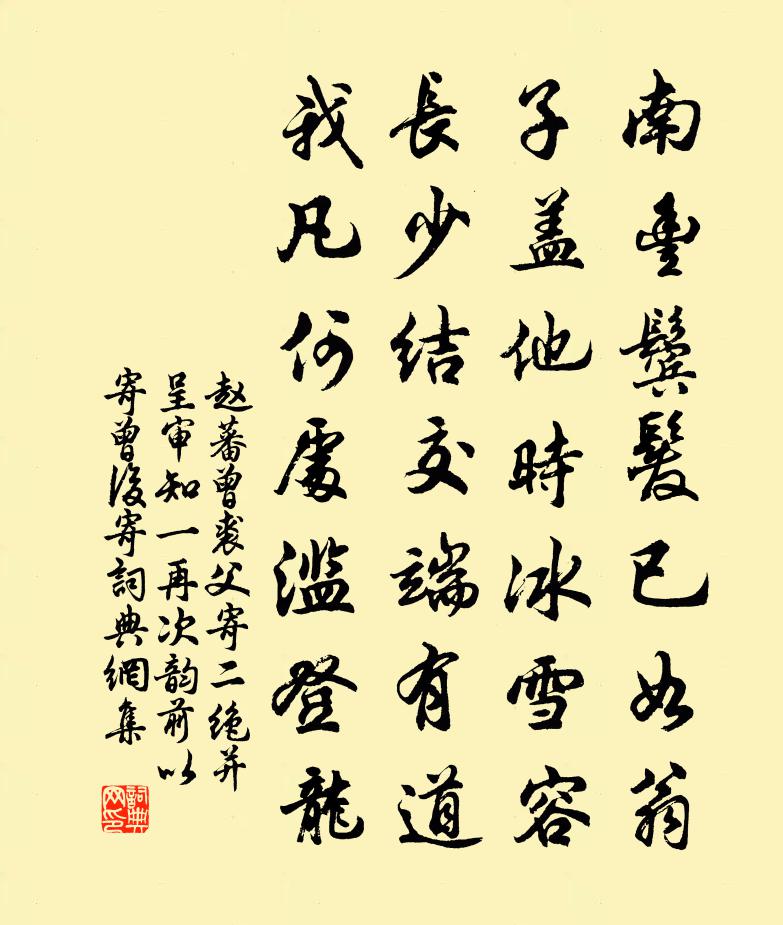 南豐鬓髮已如翁
子盖他時冰雪容
長少結交端有道
我凡何處滥登龍
赵蕃曾裘父寄二绝并
呈审知一再次韵前以
寄曾後寄詞典網集
詞典网印